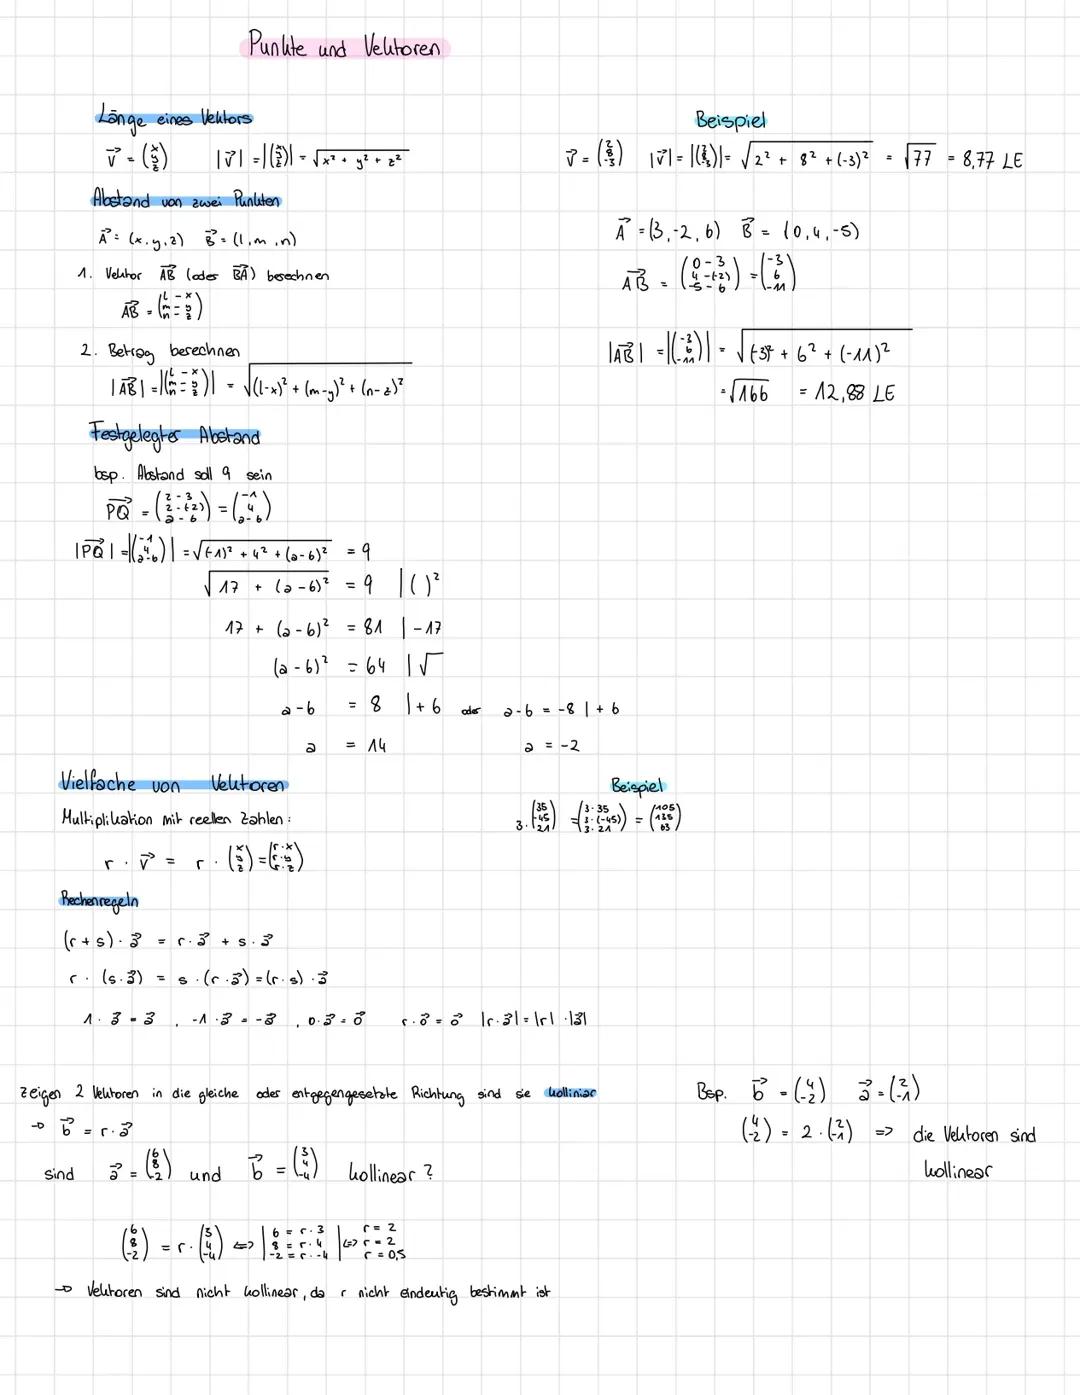 Punkte und Vektoren
Länge eines Vektors
v⃗ = (x y z) |v⃗| = |(x y z)| = √(x² + y² + z²)
Beispiel
v⃗ = (2 8 -3) |v⃗| = |(2 8 -3)| = √(2² + 8² + (-3)²) = √77 = 8,77 LE
Abstand von zwei Punkten
A⃗ = (x, y, z) B⃗ = (l, m, n)
1. Vektor AB⃗ (oder BA⃗) berechnen
AB⃗ = (l - x m - y n - z)
2. Betrag berechnen
|AB⃗| = |(l - x m - y n - z)| = √((l-x)² + (m-y)² + (n-z)²)
A⃗ = (3, -2, 6) B⃗ = (0, 4, -5)
AB⃗ = (0 - 3 4 - (-2) -5 - 6) = (-3 6 -11)
|AB⃗| = |(-3 6 -11)| = √((-3)² + 6² + (-11)²)
= √166 = 12,88 LE
Festgelegter Abstand
bsp. Abstand soll 9 sein
PQ⃗ = (2 - 3 2 - (-2) a - 6) = (-1 4 a - 6)
|PQ⃗| = |(-1 4 a-6)| = √((-1)² + 4² + (a-6)²) = 9
√(17 + (a-6)²) = 9 |( )²
17 + (a-6)² = 81 | -17
(a-6)² = 64 |√
a-6 = 8 |+6 oder a-6 = -8 | +6
a = 14 a = -2
Vielfache von Vektoren
Multiplikation mit reellen Zahlen:
r · v⃗ = r · (x y z) = (r·x r·y r·z)
Beispiel
3 · (35 -45 21) = (3·35 3·(-45) 3·21) = (105 135 63)
Rechenregeln
(r + s) · a⃗ = r · a⃗ + s · a⃗
r · (s · a⃗) = s · (r · a⃗) = (r · s) · a⃗
1 · a⃗ = a⃗ , -1 · a⃗ = -a⃗ , 0 · a⃗ = o⃗ r · o⃗ = o⃗ |r · a⃗| = |r| · |a⃗|
zeigen 2 Vektoren in die gleiche oder entgegengesetzte Richtung sind sie kolliniar
→ b⃗ = r · a⃗
sind a⃗ = (6 8 -2) und b⃗ = (3 4 -4) kollinear?
(6 8 -2) = r · (3 4 -4) ⇔ | 6 = r · 3 8 = r · 4 -2 = r · -4 | ⇔ r = 2 r = 2 r = 0,5
→ Vektoren sind nicht kollinear, da r nicht eindeutig bestimmt ist
Bsp. b⃗ = (4 -2) a⃗ = (2 -1)
(4 -2) = 2 · (2 -1) => die Vektoren sind
kollinear